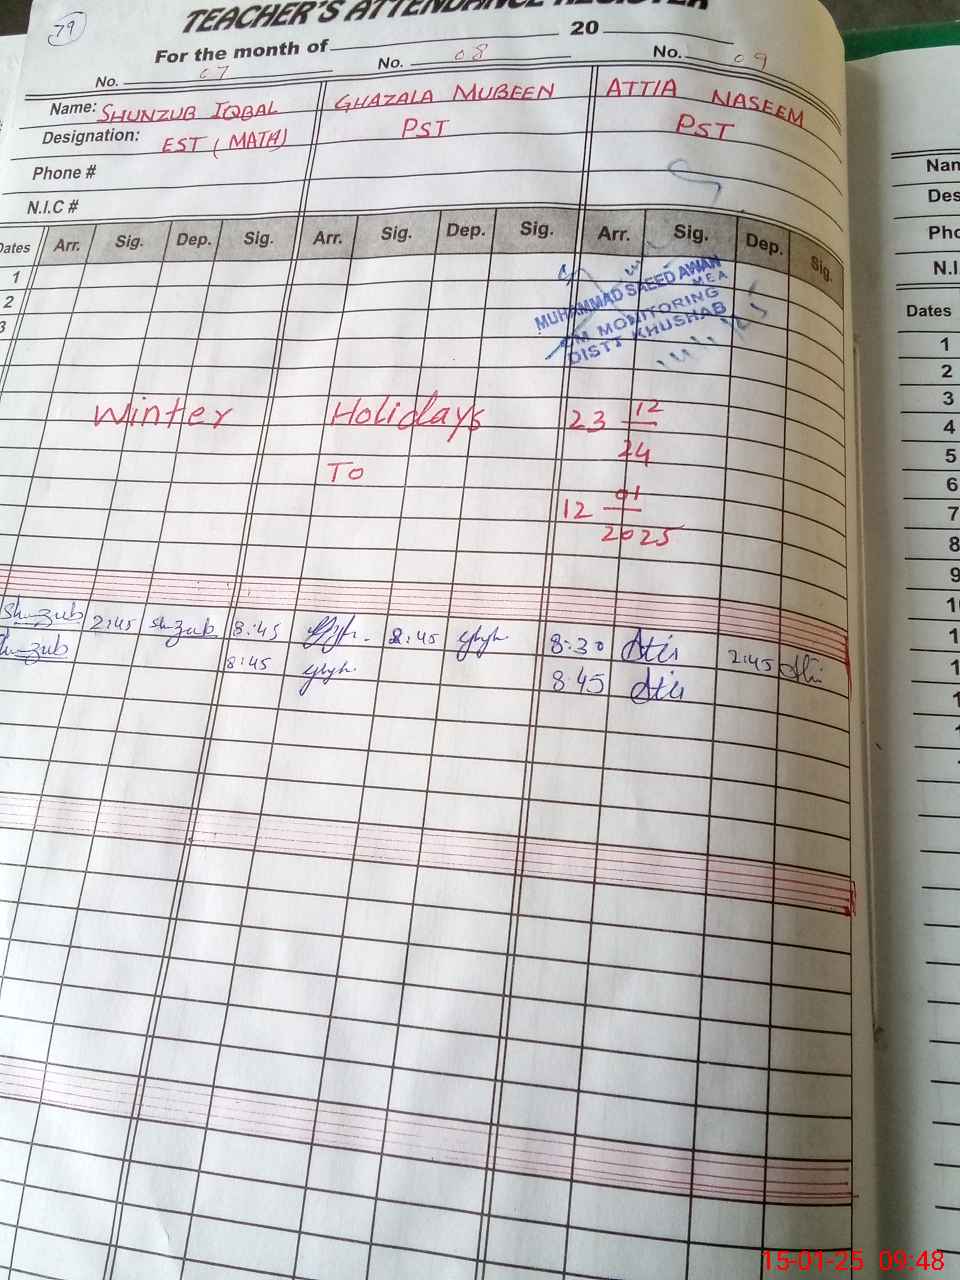 79
TEACHER'S ATTENDANCE REGISTER
For the month of 20
No. 07 No. 08 No. 09
Name: SHUNZUB IQBAL GHAZALA MUBEEN ATTIA NASEEM
Designation: EST (MATH) PST PST
Phone #
N.I.C #
Dates Arr. Sig. Dep. Sig. Arr. Sig. Dep. Sig. Arr. Sig. Dep. Sig.
1
2
3
MUHAMMAD SAEED AWAN
MEA
MONITORING
DISTT KHUSHAB
Winter Holidays 23 12
24
To
12 01
2025
Shunzub 2:45 Shunzub 8:45 2:45 8:30 Attia 2:45
8:45 8:45 Attia
Dates
1
2
3
4
5
6
7
8
15-01-25 09:48